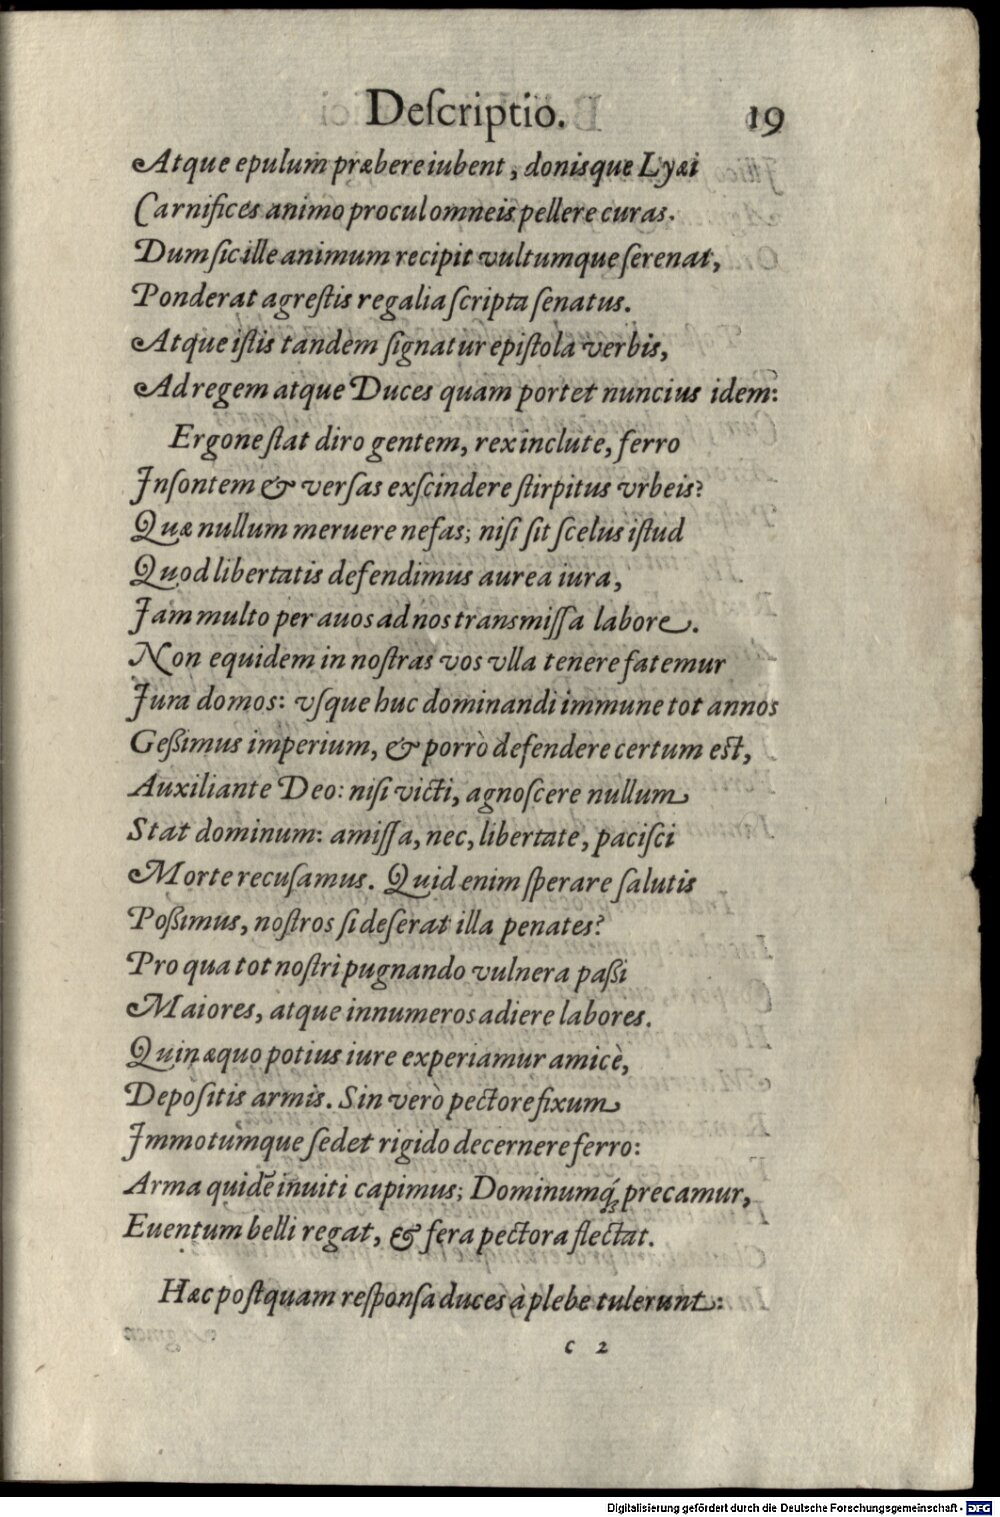 Deſcriptio. 19
Atque epulum præbere iubent, donisque Lyæi
Carnifices animo procul omneis pellere curas.
Dum ſic ille animum recipit vultumque ſerenat,
Ponderat agreſtis regalia ſcripta ſenatus.
Atque iſtis tandem ſignatur epiſtola verbis,
Ad regem atque Duces quam portet nuncius idem:
Ergone ſtat diro gentem, rex inclute, ferro
Inſontem & verſas exſcindere ſtirpitus vrbeis?
Quæ nullum meruere nefas; niſi ſit ſcelus iſtud
Quod libertatis defendimus aurea iura,
Jam multo per auos ad nos transmiſſa labore.
Non equidem in noſtras vos vlla tenere fatemur
Jura domos: vſque huc dominandi immune tot annos
Geßimus imperium, & porrò defendere certum eſt,
Auxiliante Deo: niſi victi, agnoſcere nullum
Stat dominum: amiſſa, nec, libertate, paciſci
Morte recuſamus. Quid enim ſperare ſalutis
Poßimus, noſtros ſi deſerat illa penates?
Pro qua tot noſtri pugnando vulnera paßi
Maiores, atque innumeros adiere labores.
Quin æquo potius iure experiamur amicè,
Depoſitis armis. Sin verò pectore fixum
Jmmotumque ſedet rigido decernere ferro:
Arma quidē inuiti capimus; Dominumq́; precamur,
Euentum belli regat, & fera pectora flectat.
Hæc poſtquam reſponſa duces à plebe tulerunt:
c 2
Digitalisierung gefördert durch die Deutsche Forschungsgemeinschaft - DFG